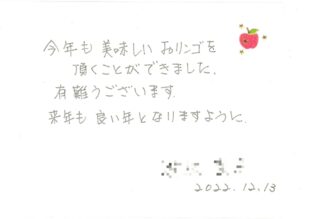 今年も美味しいおリンゴを
頂くことができました。
有難うございます。
来年も良い年となりますように。
2022.12.13